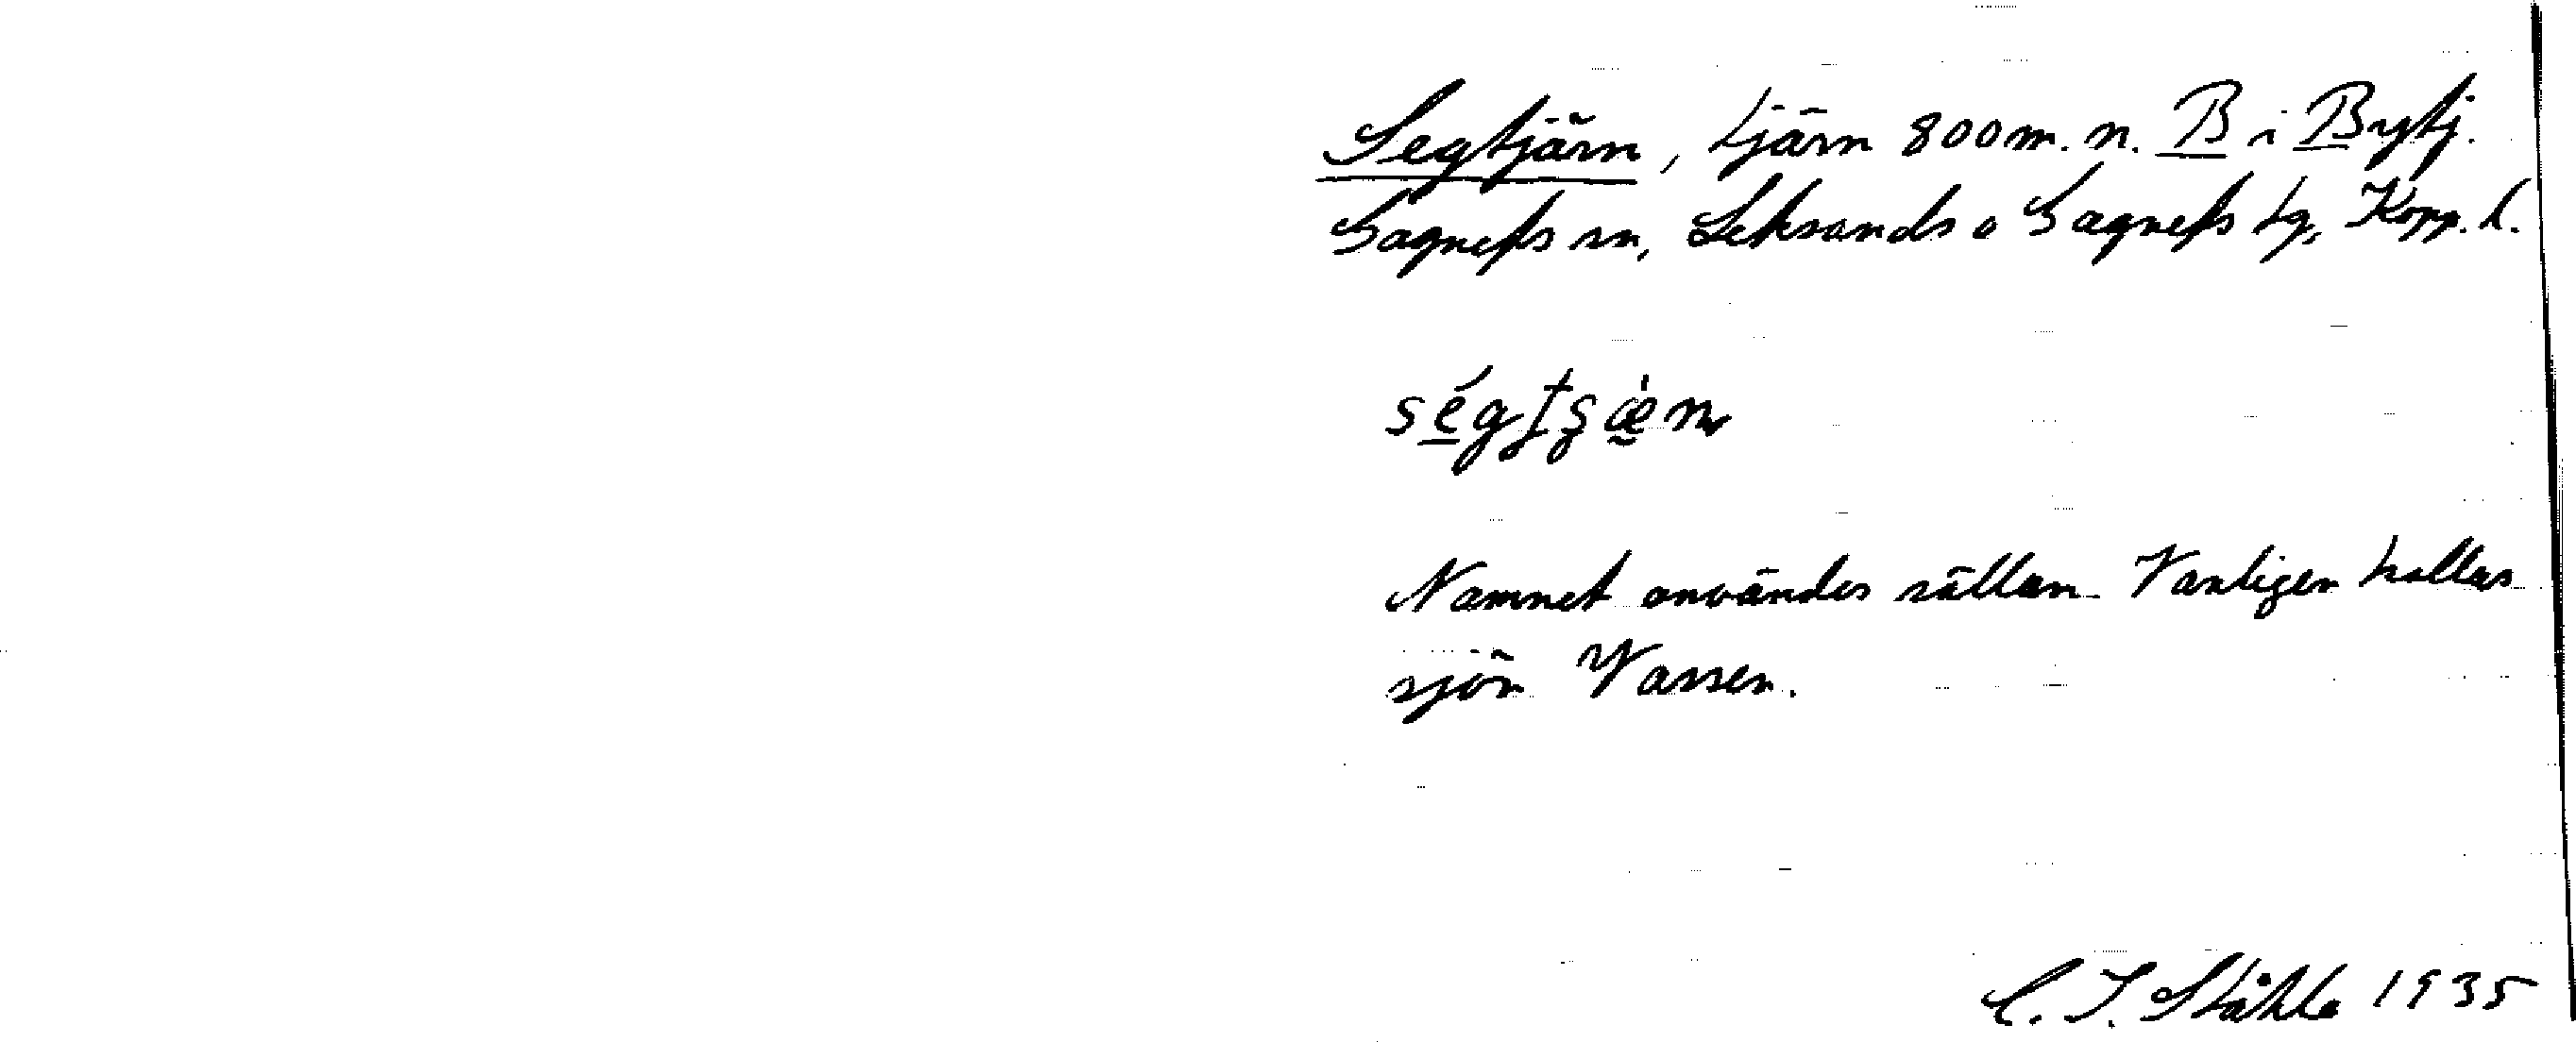 Segtjärn, tjärn 800m. n. B i Bytj.
Gagnefs sn, Leksands o Gagnefs tg, Kopp. l.
Namnet användes sällan. Vanligen kallas
sjön Vassen.
C. I. Ståhle 1935